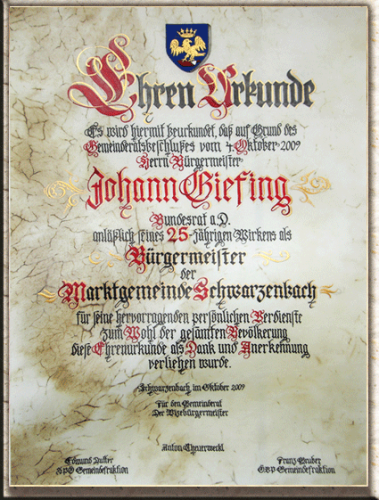 Ehren Urkunde
Es wird hiermit beurkundet, daß auf Grund des
Gemeinderatsbeschlußes vom 4. Oktober 2009
Herrn Bürgermeister
Johann Giefing
Bundesrat a.D.
anläßlich seines 25-jährigen Wirkens als
Bürgermeister
der
Marktgemeinde Schwarzenbach
für seine hervorragenden persönlichen Verdienste
zum Wohl der gesamten Bevölkerung
diese Ehrenurkunde als Dank und Anerkennung
verliehen wurde.
Schwarzenbach, im Oktober 2009
Für den Gemeinderat
Der Vizebürgermeister
Anton
Edmund
Franz Gruber
SPÖ Gemeindefraktion
ÖVP Gemeindefraktion